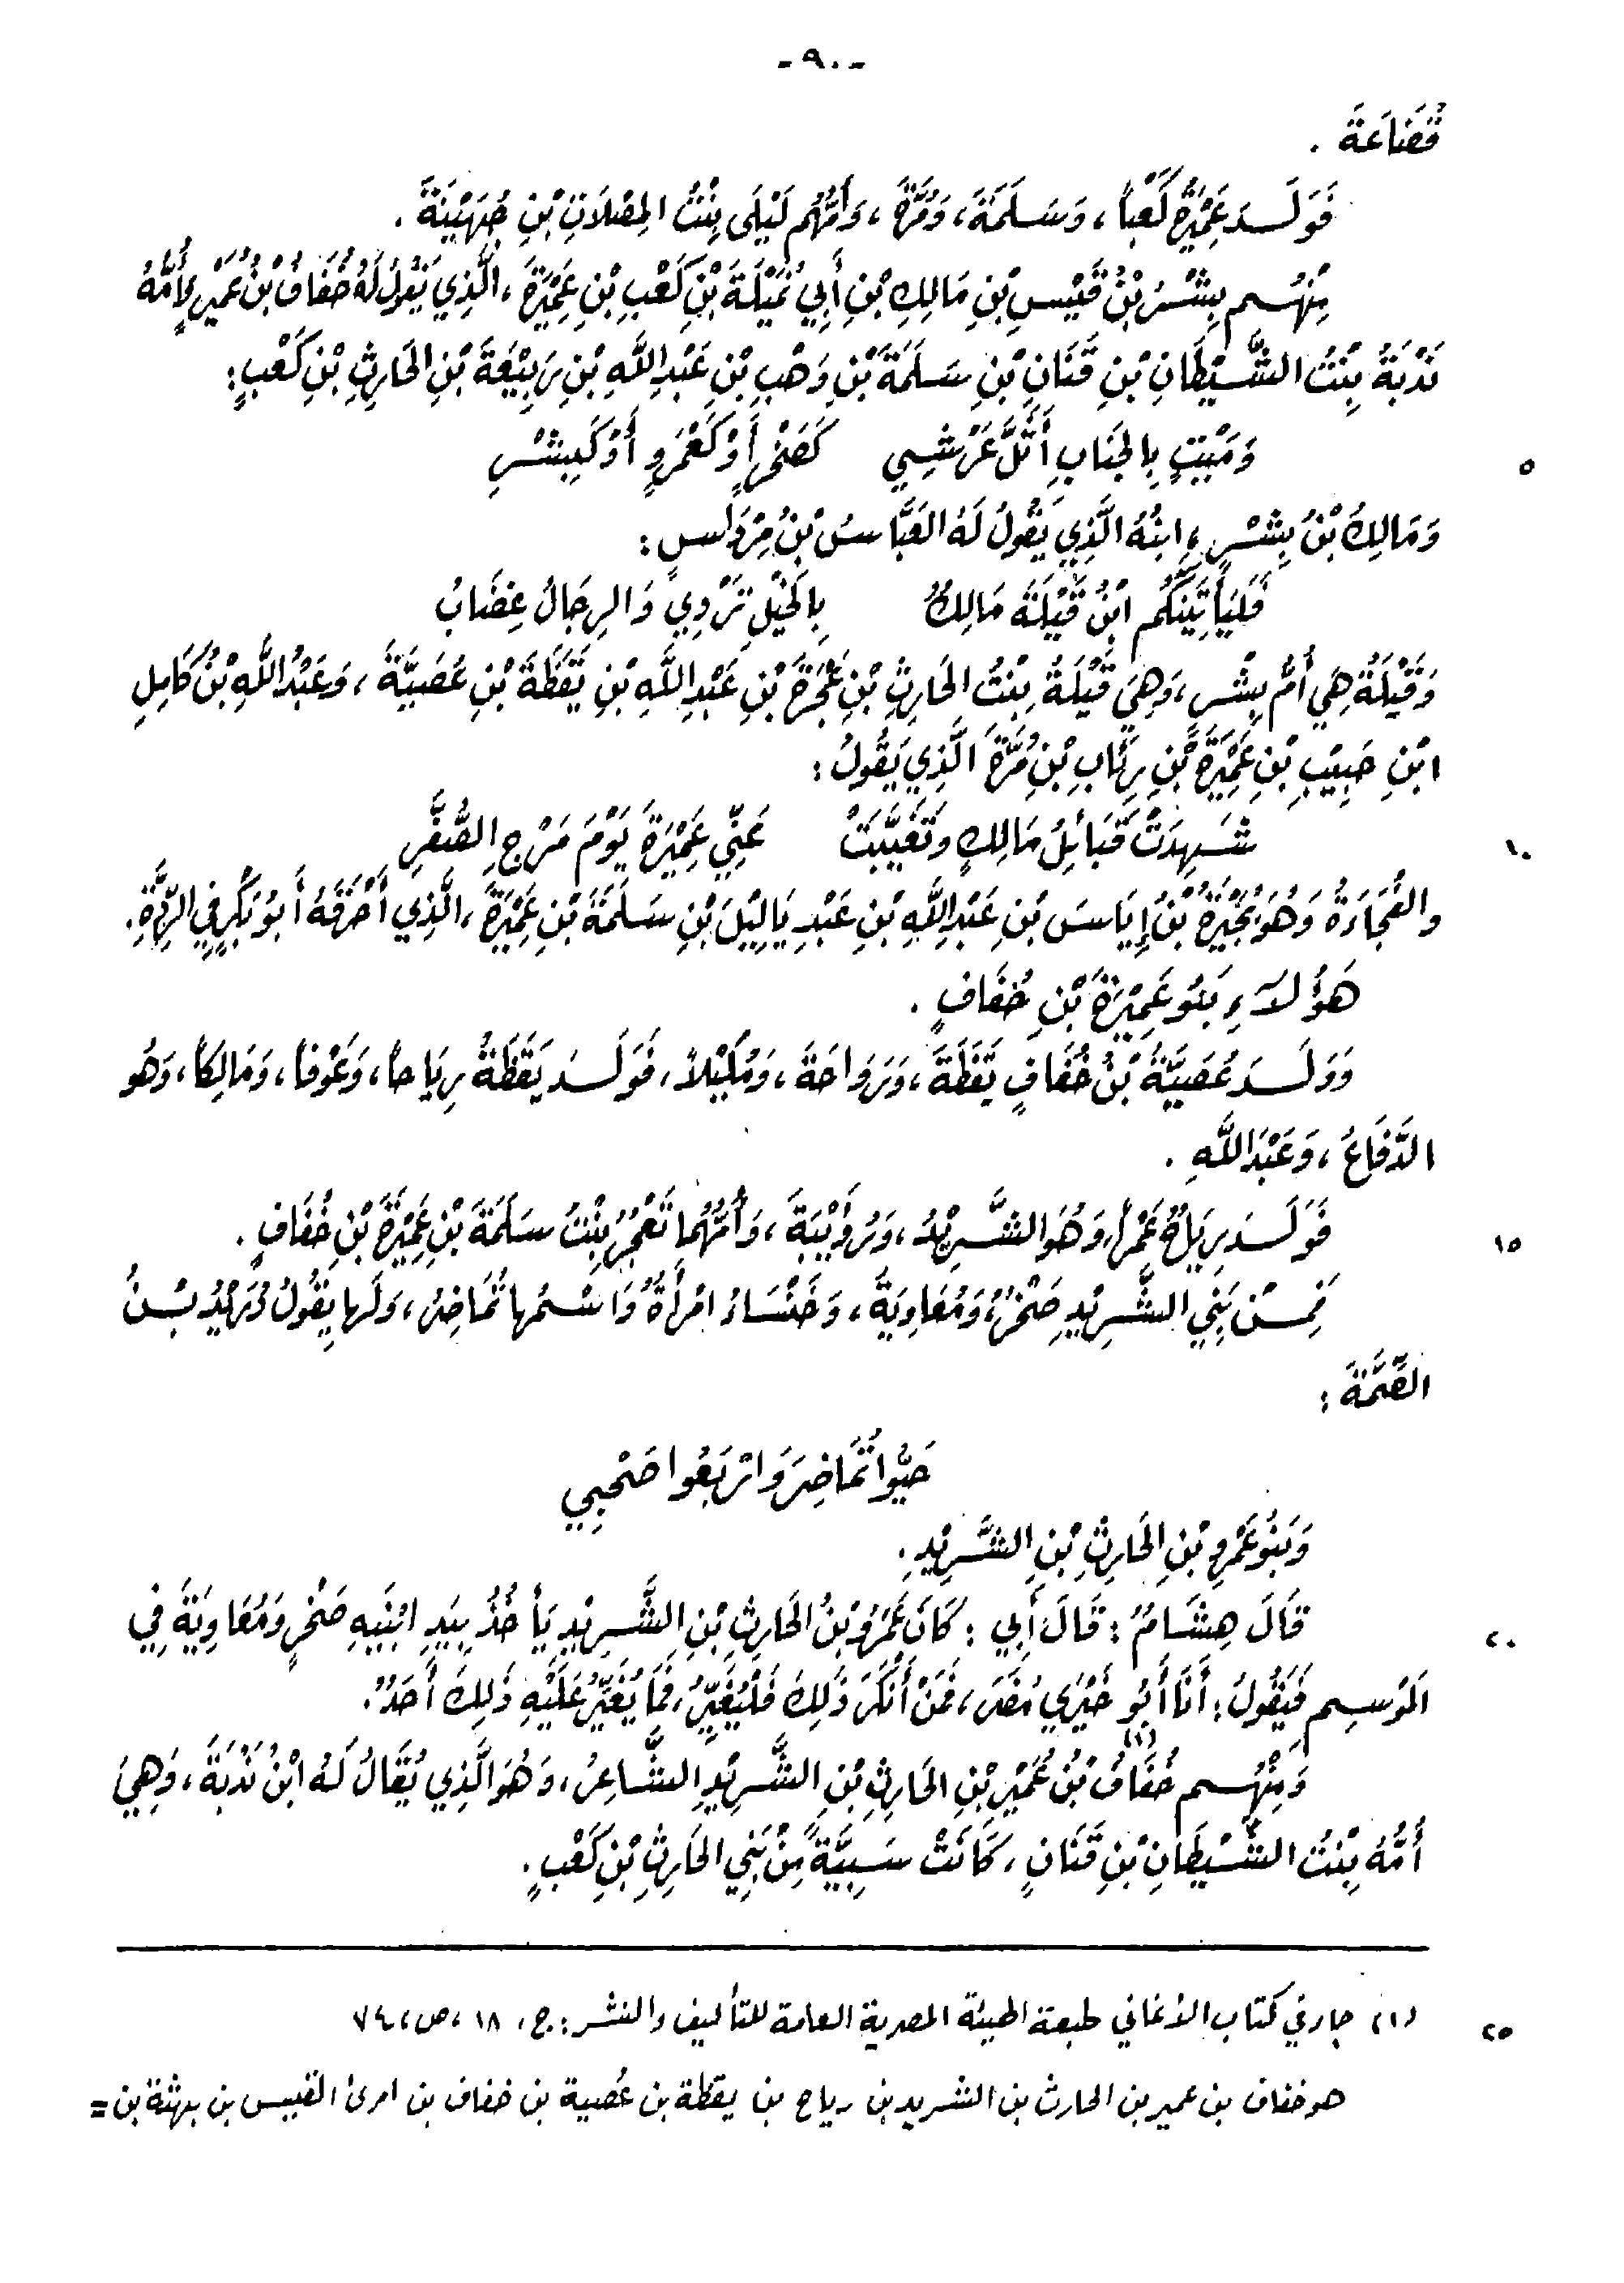 - ٩٠ -
قُضَاعَةَ .
فَوَلَدَ عَمِيْرَةُ كَعْبًا، وَسَلَمَةَ، وَمُرَّةَ، وَأُمُّهُم لَيْلَى بِنْتُ المِصْلَاتِ بْنِ جُهَيْنَةَ .
مِنْهُم بِشْرُ بْنُ قَيْسِ بْنِ مَالِكِ بْنِ أَبِي نُمَيْلَةَ بْنِ كَعْبِ بْنِ عَمِيْرَةَ، الَّذِي يَقُولُ لَهُ خُفَافُ بْنُ عُمَيْرٍ لِأُمِّهِ
نَدْبَةُ بِنْتُ الشَّيْطَانِ بْنِ قَنَانِ بْنِ سَلَمَةَ بْنِ وَهْبِ بْنِ عَبْدِ اللَّهِ بْنِ رَبِيْعَةَ بْنِ الحَارِثِ بْنِ كَعْبٍ :
وَمَيْتٍ بِالجَنَابِ أَثَلَّ عَرْشِي كَصَخْرٍ أَوْ كَعَمْرٍو أَوْ كَبِشْرِ
٥
وَمَالِكُ بْنُ بِشْرٍ، ابْنُهُ الَّذِي يَقُولُ لَهُ العَبَّاسُ بْنُ مِرْدَاسٍ :
فَلَيَأْتِيَنَّكُم ابْنُ قَيْلَةَ مَالِكٌ بِالخَيْلِ تَرْدِي وَالرِجَالُ غِضَابُ
وَقَيْلَةُ هِيَ أُمُّ بِشْرٍ، وَهِيَ قَيْلَةُ بِنْتُ الحَارِثِ بْنِ عُجْرَةَ بْنِ عَبْدِ اللَّهِ بْنِ يَقَظَةَ بْنِ عُصَيَّةَ، وَعَبْدُ اللَّهِ بْنُ كَامِلِ
ابْنِ حَبِيْبِ بْنِ عَمِيْرَةَ بْنِ رِئَابِ بْنِ مُرَّةَ الَّذِي يَقُولُ :
شَهِدَتْ قَبَائِلُ مَالِكٍ وَتَغَيَّبَتْ عَنِّي عَمِيْرَةَ يَوْمَ مَرْجِ الصُّفَّرِ
١٠
والفُجَاءَةُ وَهُوَ بُجَيْرَةُ بْنُ إِيَاسَ بْنِ عَبْدِ اللَّهِ بْنِ عَبْدِ يَالِيْلَ بْنِ سَلَمَةَ بْنِ عَمِيْرَةَ، الَّذِي أَحْرَقَهُ أَبُو بَكْرٍ فِي الرِّدَّةِ .
هَؤُلَاءِ بَنُو عَمِيْرَةَ بْنِ خُفَافٍ .
وَوَلَدَ عُصَيَّةُ بْنُ خُفَافٍ يَقَظَةَ، وَرَوَاحَةَ، وَمُلَيْلًا، فَوَلَدَ يَقَظَةُ رِيَاحًا، وَعَوْفًا، وَمَالِكًا، وَهُو
الدَّفَاعُ، وَعَبْدَ اللَّهِ .
فَوَلَدَ رِيَاحٌ عَمْرًا، وَهُوَ الشَّرِيْدُ، وَرُؤَيْبَةَ، وَأُمُّهُمَا تَعْجُزُ بِنْتُ سَلَمَةَ بْنِ عَمِيْرَةَ بْنِ خُفَافٍ .
١٥
فَمِنْ بَنِي الشَّرِيْدِ صَخْرٌ، وَمُعَاوِيَةُ، وَخَنْسَاءُ امْرَأَةٌ وَاسْمُهَا تُمَاضِرُ، وَلَهَا يَقُولُ دُرَيْدُ بْنُ
الصِّمَّةَ :
حَيُّوا تُمَاضِرَ وَارْبَعُوا صَحْبِي
وَبَنُو عَمْرِو بْنِ الحَارِثِ بْنِ الشَّرِيْدِ .
قَالَ هِشَامٌ : قَالَ أَبِي : كَانَ عَمْرُو بْنُ الحَارِثِ بْنِ الشَّرِيْدِ يَأْخُذُ بِيَدِ ابْنَيْهِ صَخْرٍ وَمُعَاوِيَةَ فِي
٢٠
المَوْسِمِ فَيَقُولُ : أَنَا أَبُو خَيْرَي مُضَرَ، فَمَنْ أَنْكَرَ ذَلِكَ فَلْيُغَيِّرْ، فَمَا يُغَيِّرُ عَلَيْهِ ذَلِكَ أَحَدٌ .
وَمِنْهُم خُفَافُ (١) بْنُ عُمَيْرِ بْنِ الحَارِثِ بْنِ الشَّرِيْدِ الشَّاعِرُ، وَهُوَ الَّذِي يُقَالُ لَهُ ابْنُ نَدْبَةَ، وَهِيَ
أُمُّهُ بِنْتُ الشَّيْطَانِ بْنِ قَنَانٍ، كَانَتْ سَبِيَّةً مِنْ بَنِي الحَارِثِ بْنِ كَعْبٍ .
(١) جاء في كتاب الأغاني طبعة الهيئة المصرية العامة للتأليف والنشر : ج، ١٨ ،ص، ٧٤
٢٥
هو خفاف بن عمير بن الحارث بن الشريد بن رياح بن يقظة بن عُصية بن خفاف بن امرئ القيس بن بهثة بن =